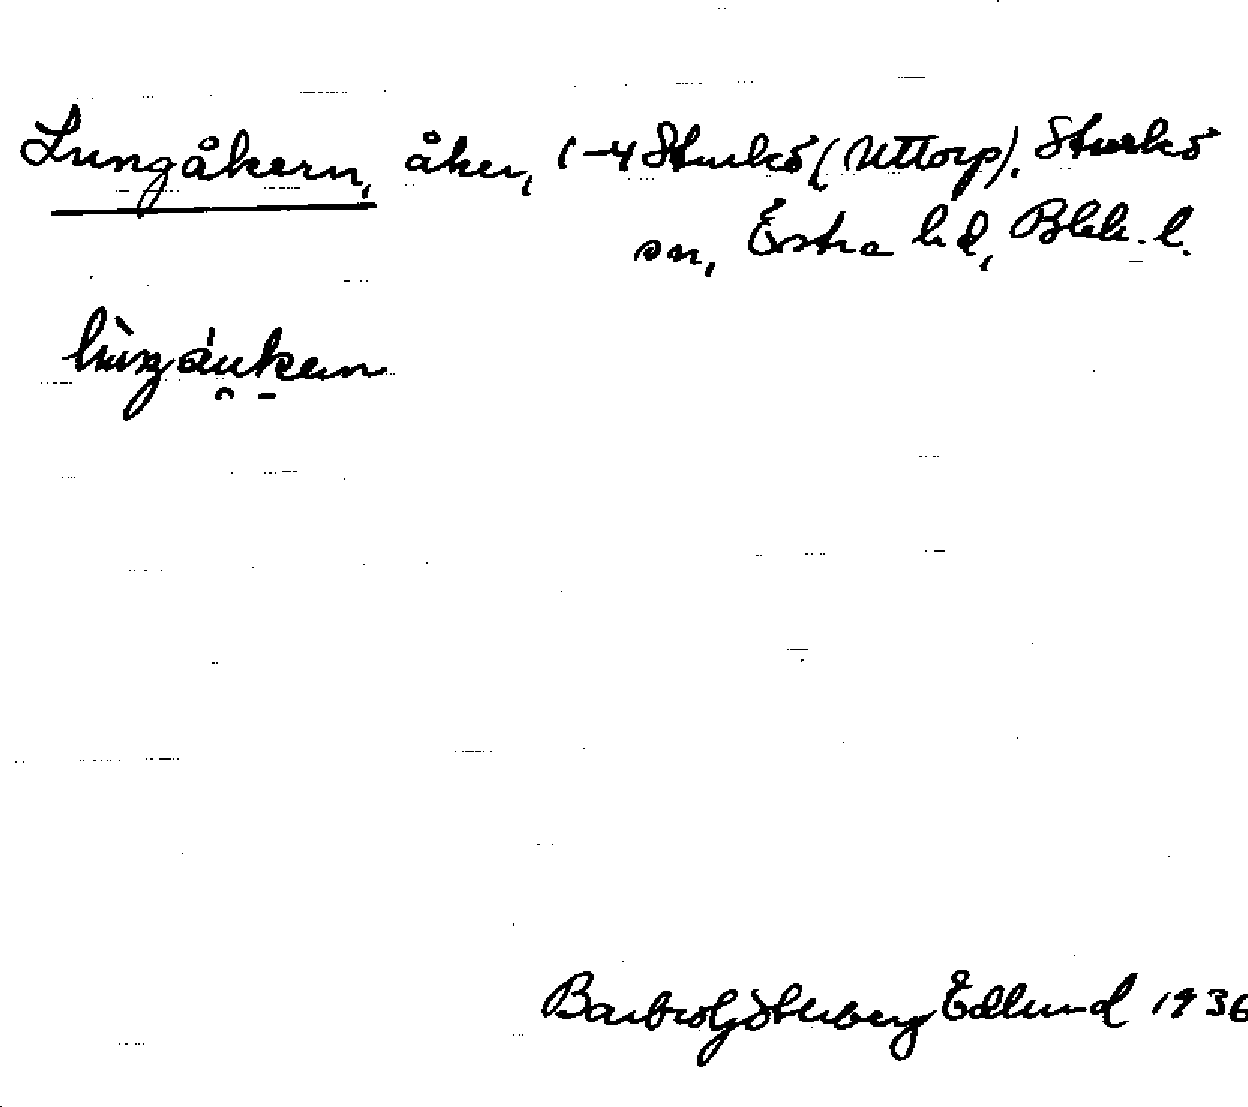 Lungåkern, åker, 1-4 Sturkö (Uttorp). Sturkö
sn, Östra hd, Blek. l.
Barbro Göterberg Edlund 1936